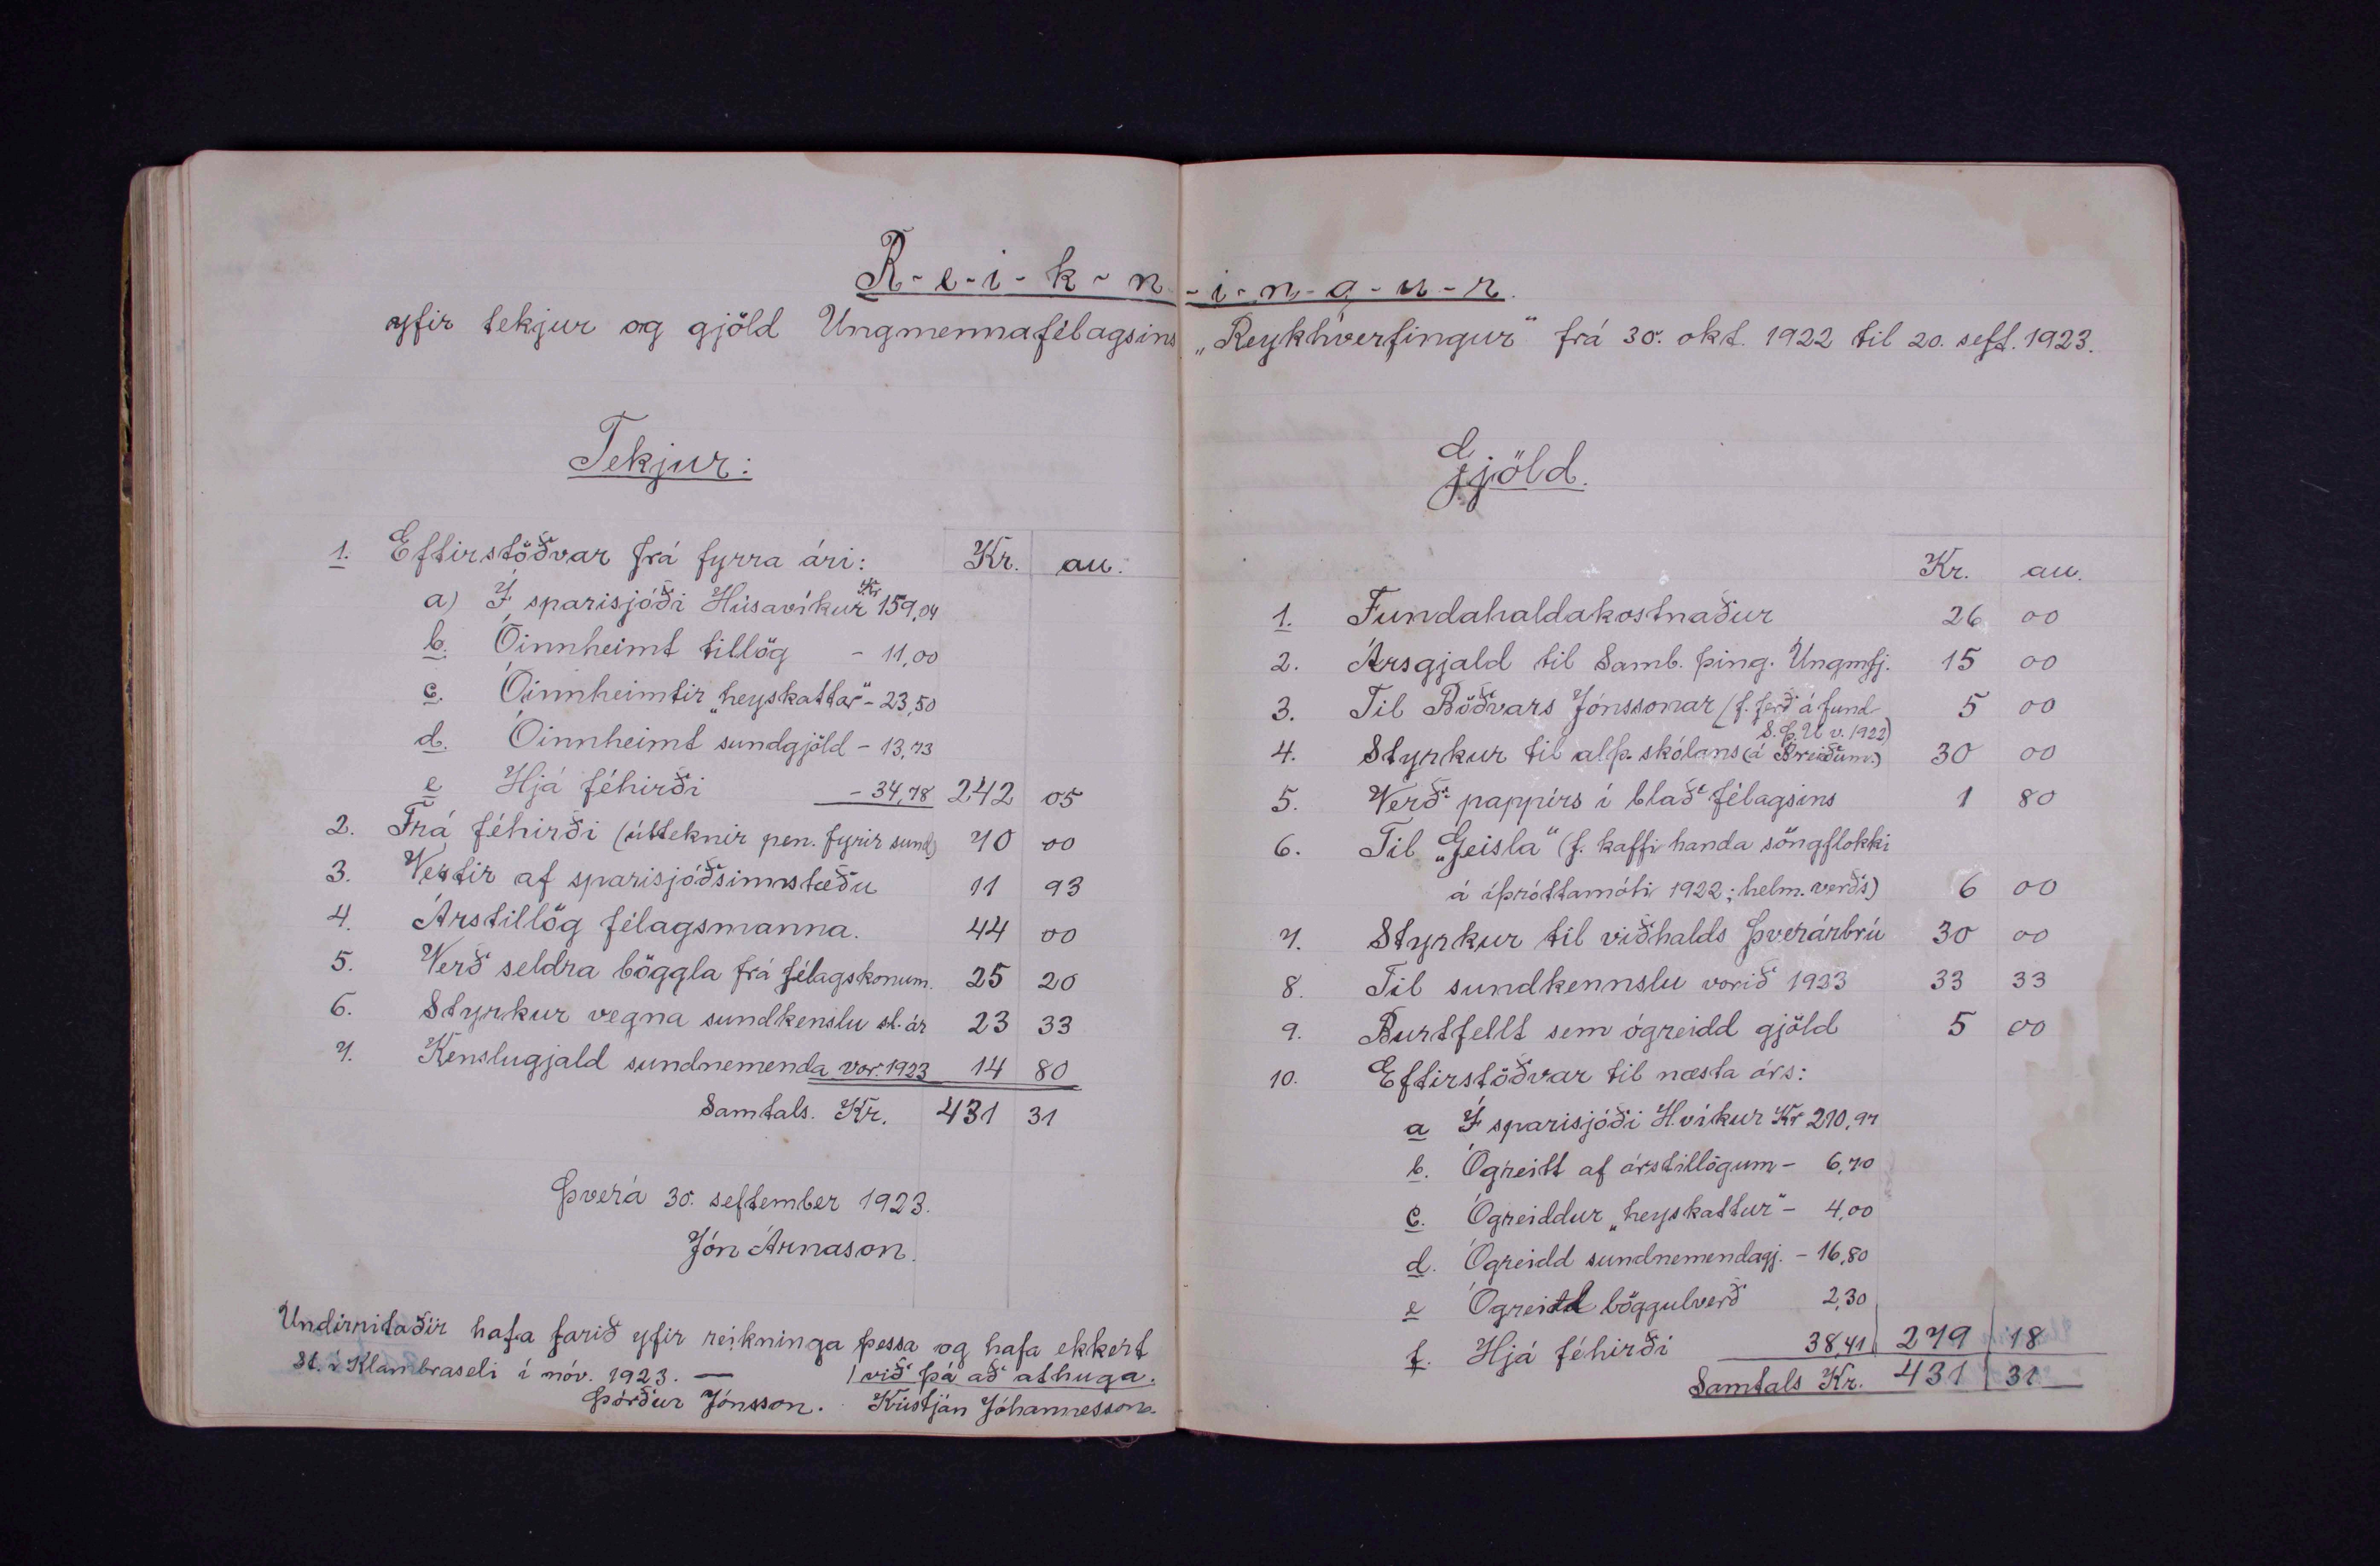 R-e-i-k-n-i-n-g-u-r.
yfir tekjur og gjöld Ungmennafélagsins „Reykhverfingur" frá 30. okt. 1922 til 20. sept. 1923.
Tekjur:
Kr. au.
1. Eftirstöðvar frá fyrra ári:
a) Í sparisjóði Húsavíkur Kr 159,04
b. Óinnheimt tillög - 11,00
c. Óinnheimtir „heyskattar" - 23,50
d. Óinnheimt sundgjöld - 13,73
e Hjá féhirði - 34,78 242 05
2. Frá féhirði (útteknir pen. fyrir sund) 70 00
3. Vextir af sparisjóðsinnstæðu 11 93
4. Árstillög félagsmanna. 44 00
5. Verð seldra böggla frá félagskonum. 25 20
6. Styrkur vegna sundkenslu sl. ár 23 33
7. Kenslugjald sundnemenda vor. 1923 14 80
Samtals. Kr. 431 31
Þverá 30. september 1923.
Jón Árnason.
Undirritaðir hafa farið yfir reikninga þessa og hafa ekkert
við þá að athuga.
St. í Klambraseli í nóv. 1923. —
Þórður Jónsson. Kristján Jóhannesson.
Gjöld.
Kr. au.
1. Fundahaldakostnaður 26 00
2. Ársgjald til Samb. þing. Ungmfj. 15 00
3. Til Böðvars Jónssonar (f. ferð á fund 5 00
S.þ.U v. 1922)
4. Styrkur til alþ. skólans (á Breiðum.) 30 00
5. Verð pappírs í blað félagsins 1 80
6. Til „Geisla" (f. kaffi handa söngflokki
á íþróttamóti 1922; helm. verðs) 6 00
7. Styrkur til viðhalds Þverárbrú 30 00
8. Til sundkennslu vorið 1923 33 33
9. Burtfellt sem ógreidd gjöld 5 00
10. Eftirstöðvar til næsta árs:
a Í sparisjóði H.víkur Kr 210,97
b. Ógreitt af árstillögum - 6,70
c. Ógreiddur „heyskattur" - 4,00
d. Ógreidd sundnemendagj. - 16,80
e Ógreidd böggulverð 2,30
f. Hjá féhirði 38,41 279 18
Samtals Kr. 431 31